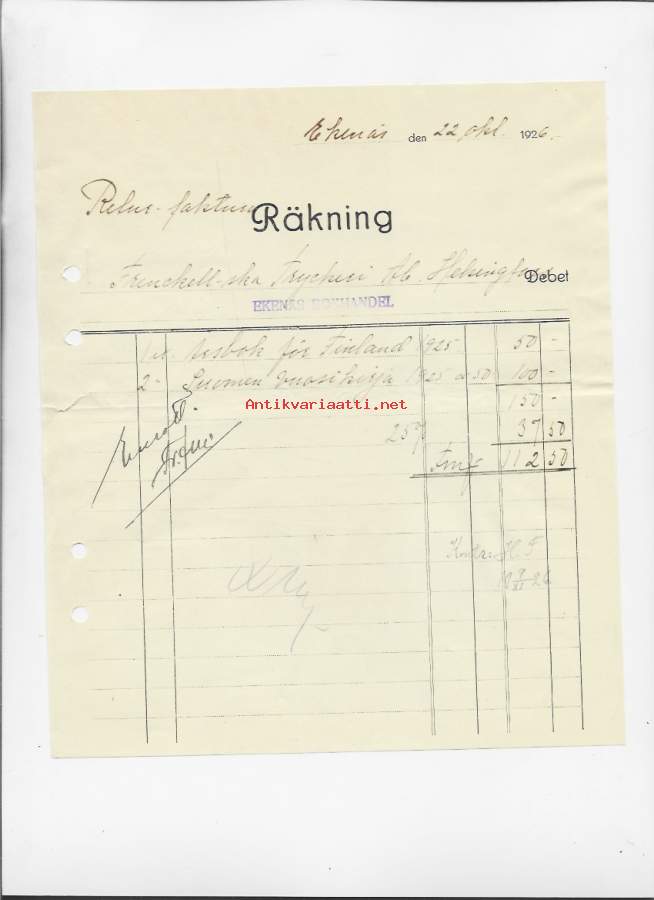 Ekenäs den 22 okt. 1926.
Retur-faktura
Räkning
Frenckell-ska Tryckeri Ab. Helsingfors Debet
EKENÄS BOKHANDEL
1 st. Årsbok för Finland 1925 50 -
2 - Suomen vuosikirja 1925 a 50 100 -
Antikvariaatti.net
150 -
25% 37 50
Fmk 112 50